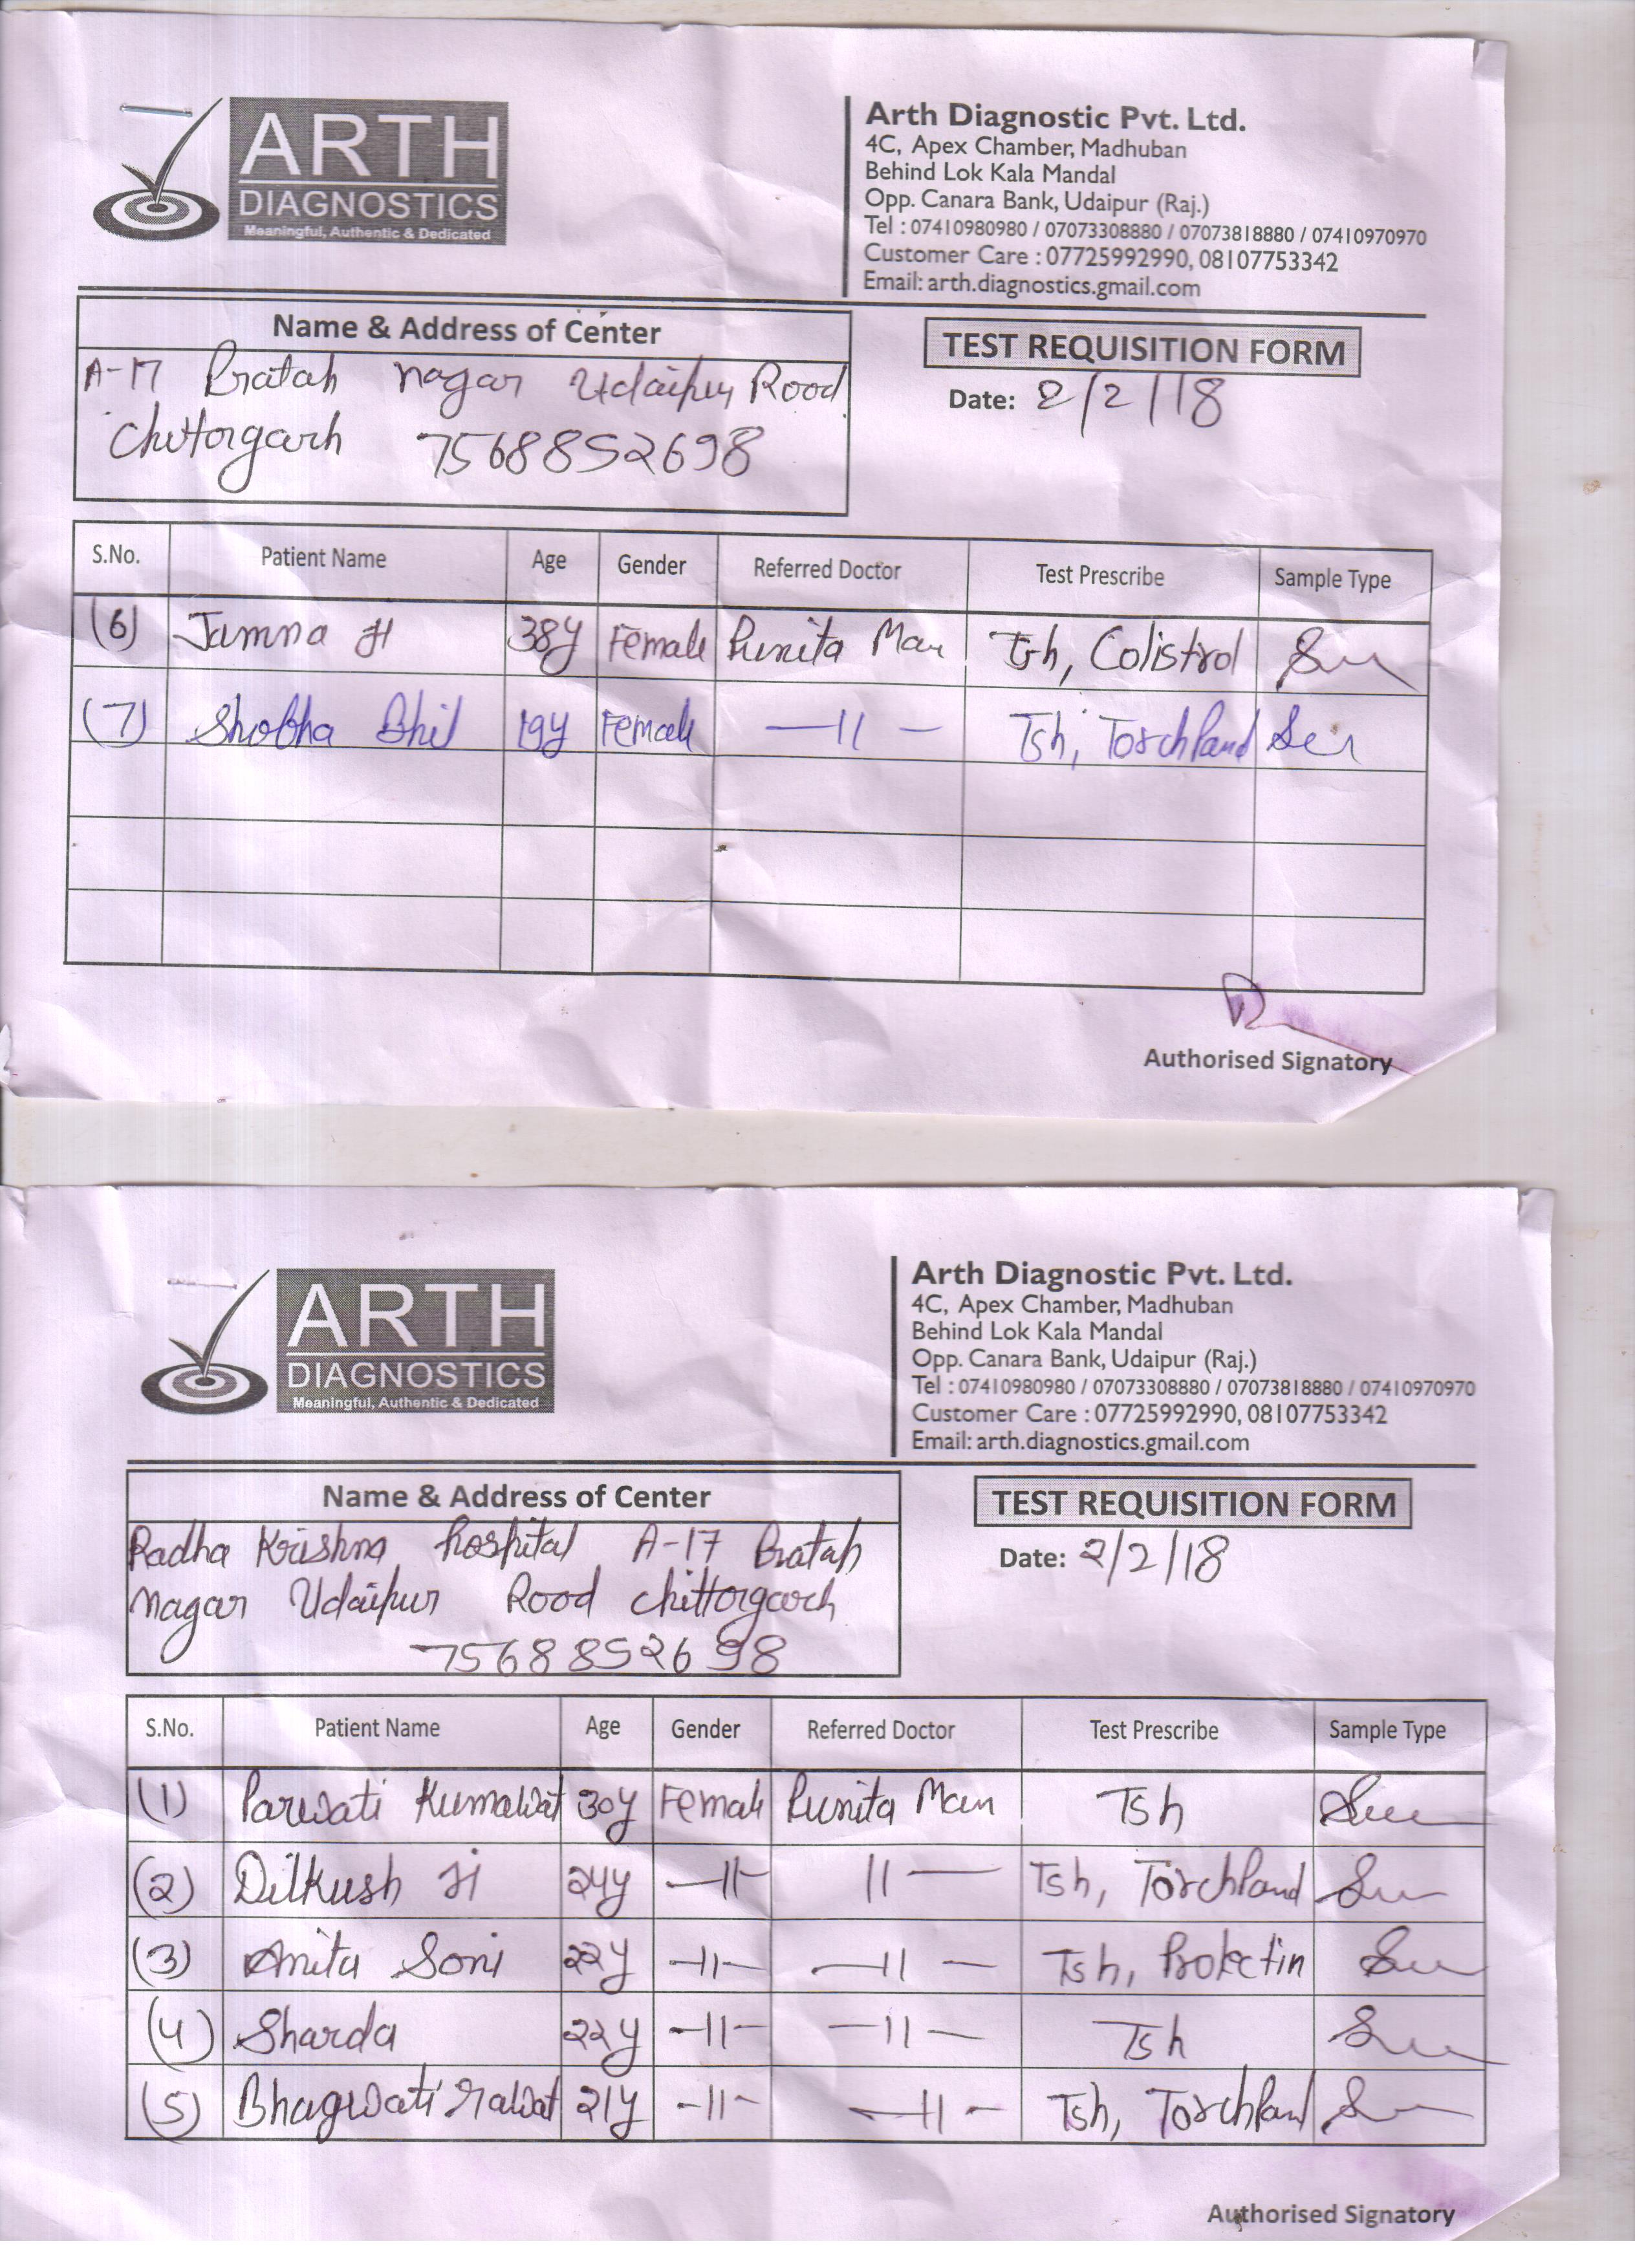 ARTH
DIAGNOSTICS
Meaningful, Authentic & Dedicated
Arth Diagnostic Pvt. Ltd.
4C, Apex Chamber, Madhuban
Behind Lok Kala Mandal
Opp. Canara Bank, Udaipur (Raj.)
Tel : 07410980980 / 07073308880 / 07073818880 / 07410970970
Customer Care : 07725992990, 08107753342
Email: arth.diagnostics.gmail.com
Name & Address of Center
A-17 Pratap nagar Udaipur Rood
Chittorgarh 7568852698
TEST REQUISITION FORM
Date: 2/2/18
S.No. Patient Name Age Gender Referred Doctor Test Prescribe Sample Type
(6) Jamna Ji 38y Female Punita Mam Tsh, Colistrol
(7) Shobha Bhil 19y Female —11— Tsh, Torchpand
Authorised Signatory
ARTH
DIAGNOSTICS
Meaningful, Authentic & Dedicated
Arth Diagnostic Pvt. Ltd.
4C, Apex Chamber, Madhuban
Behind Lok Kala Mandal
Opp. Canara Bank, Udaipur (Raj.)
Tel : 07410980980 / 07073308880 / 07073818880 / 07410970970
Customer Care : 07725992990, 08107753342
Email: arth.diagnostics.gmail.com
Name & Address of Center
Radha Krishna hospital A-17 Pratap
nagar Udaipur Rood chittorgarh
7568852698
TEST REQUISITION FORM
Date: 2/2/18
S.No. Patient Name Age Gender Referred Doctor Test Prescribe Sample Type
(1) Parwati Kumawat 30y Female Punita Mam Tsh
(2) Dilkush Ji 24y —11— 11— Tsh, Torchpand
(3) Anita Soni 22y —11— —11— Tsh, Prolectin
(4) Sharda 22y —11— —11— Tsh
(5) Bhagwati rawat 21y —11— —11— Tsh, Torchpand
Authorised Signatory